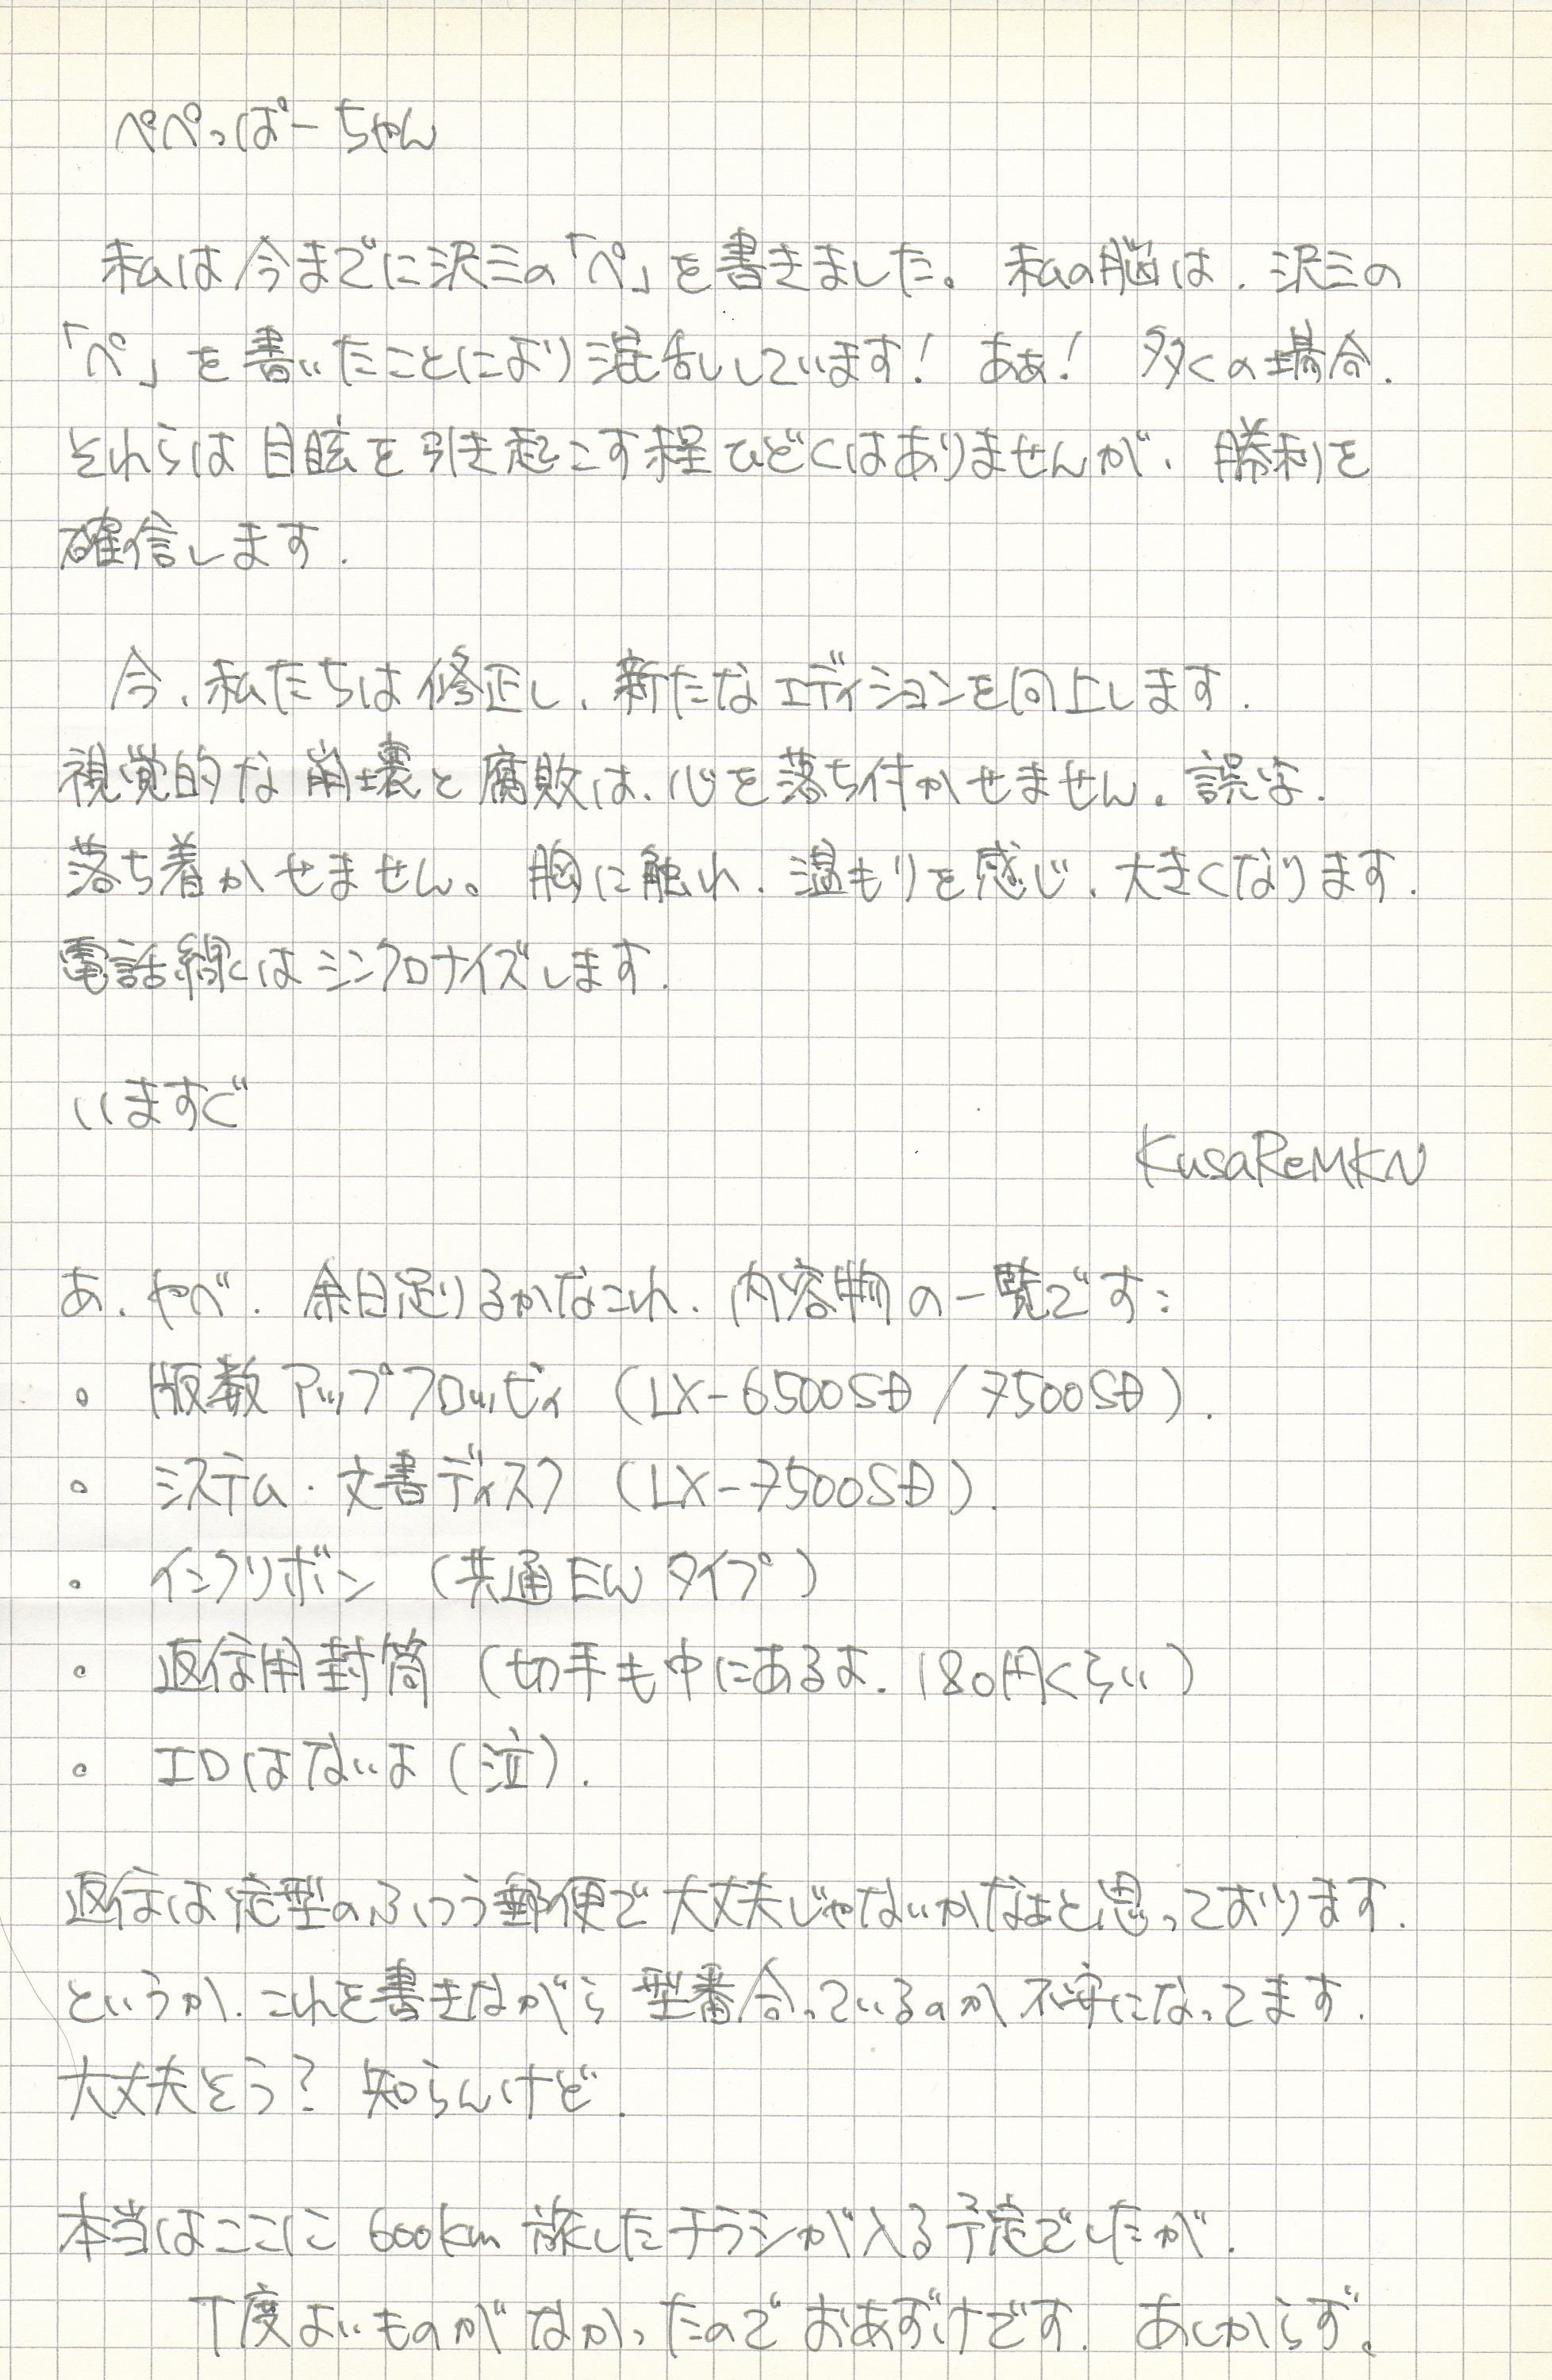 ぺぺっぱーちゃん
私は今までに沢三の「ペ」を書きました。私の脳は、沢三の
「ペ」を書いたことにより混乱しています！ ああ！ 多くの場合、
それらは目眩を引き起こす程ひどくはありませんが、勝利を
確信します.
今、私たちは修正し、新たなエディションを向上します.
視覚的な崩壊と腐敗は、心を落ち付かせません。誤字.
落ち着かせません。胸に触れ、温もりを感じ、大きくなります.
電話線はシンクロナイズします.
いますぐ
KusaReMKN
あ、やべ. 余白足りるかなこれ. 内容物の一覧です:
。 版数アップフロッピィ (LX-6500SD / 7500SD).
。 システム・文書ディスク (LX-7500SD).
。 インクリボン (共通EWタイプ)
。 返信用封筒 (切手も中にあるよ. 180円くらい)
。 IDはないよ (泣).
返信は定型のふつう郵便で大丈夫じゃないかなぁと思っております.
というか、これを書きながら型番合っているのか不安になってます.
大丈夫そう? 知らんけど.
本当はここに 600km 旅したチラシが入る予定でしたが.
丁度よいものがなかったのでおあずけです. あしからず。